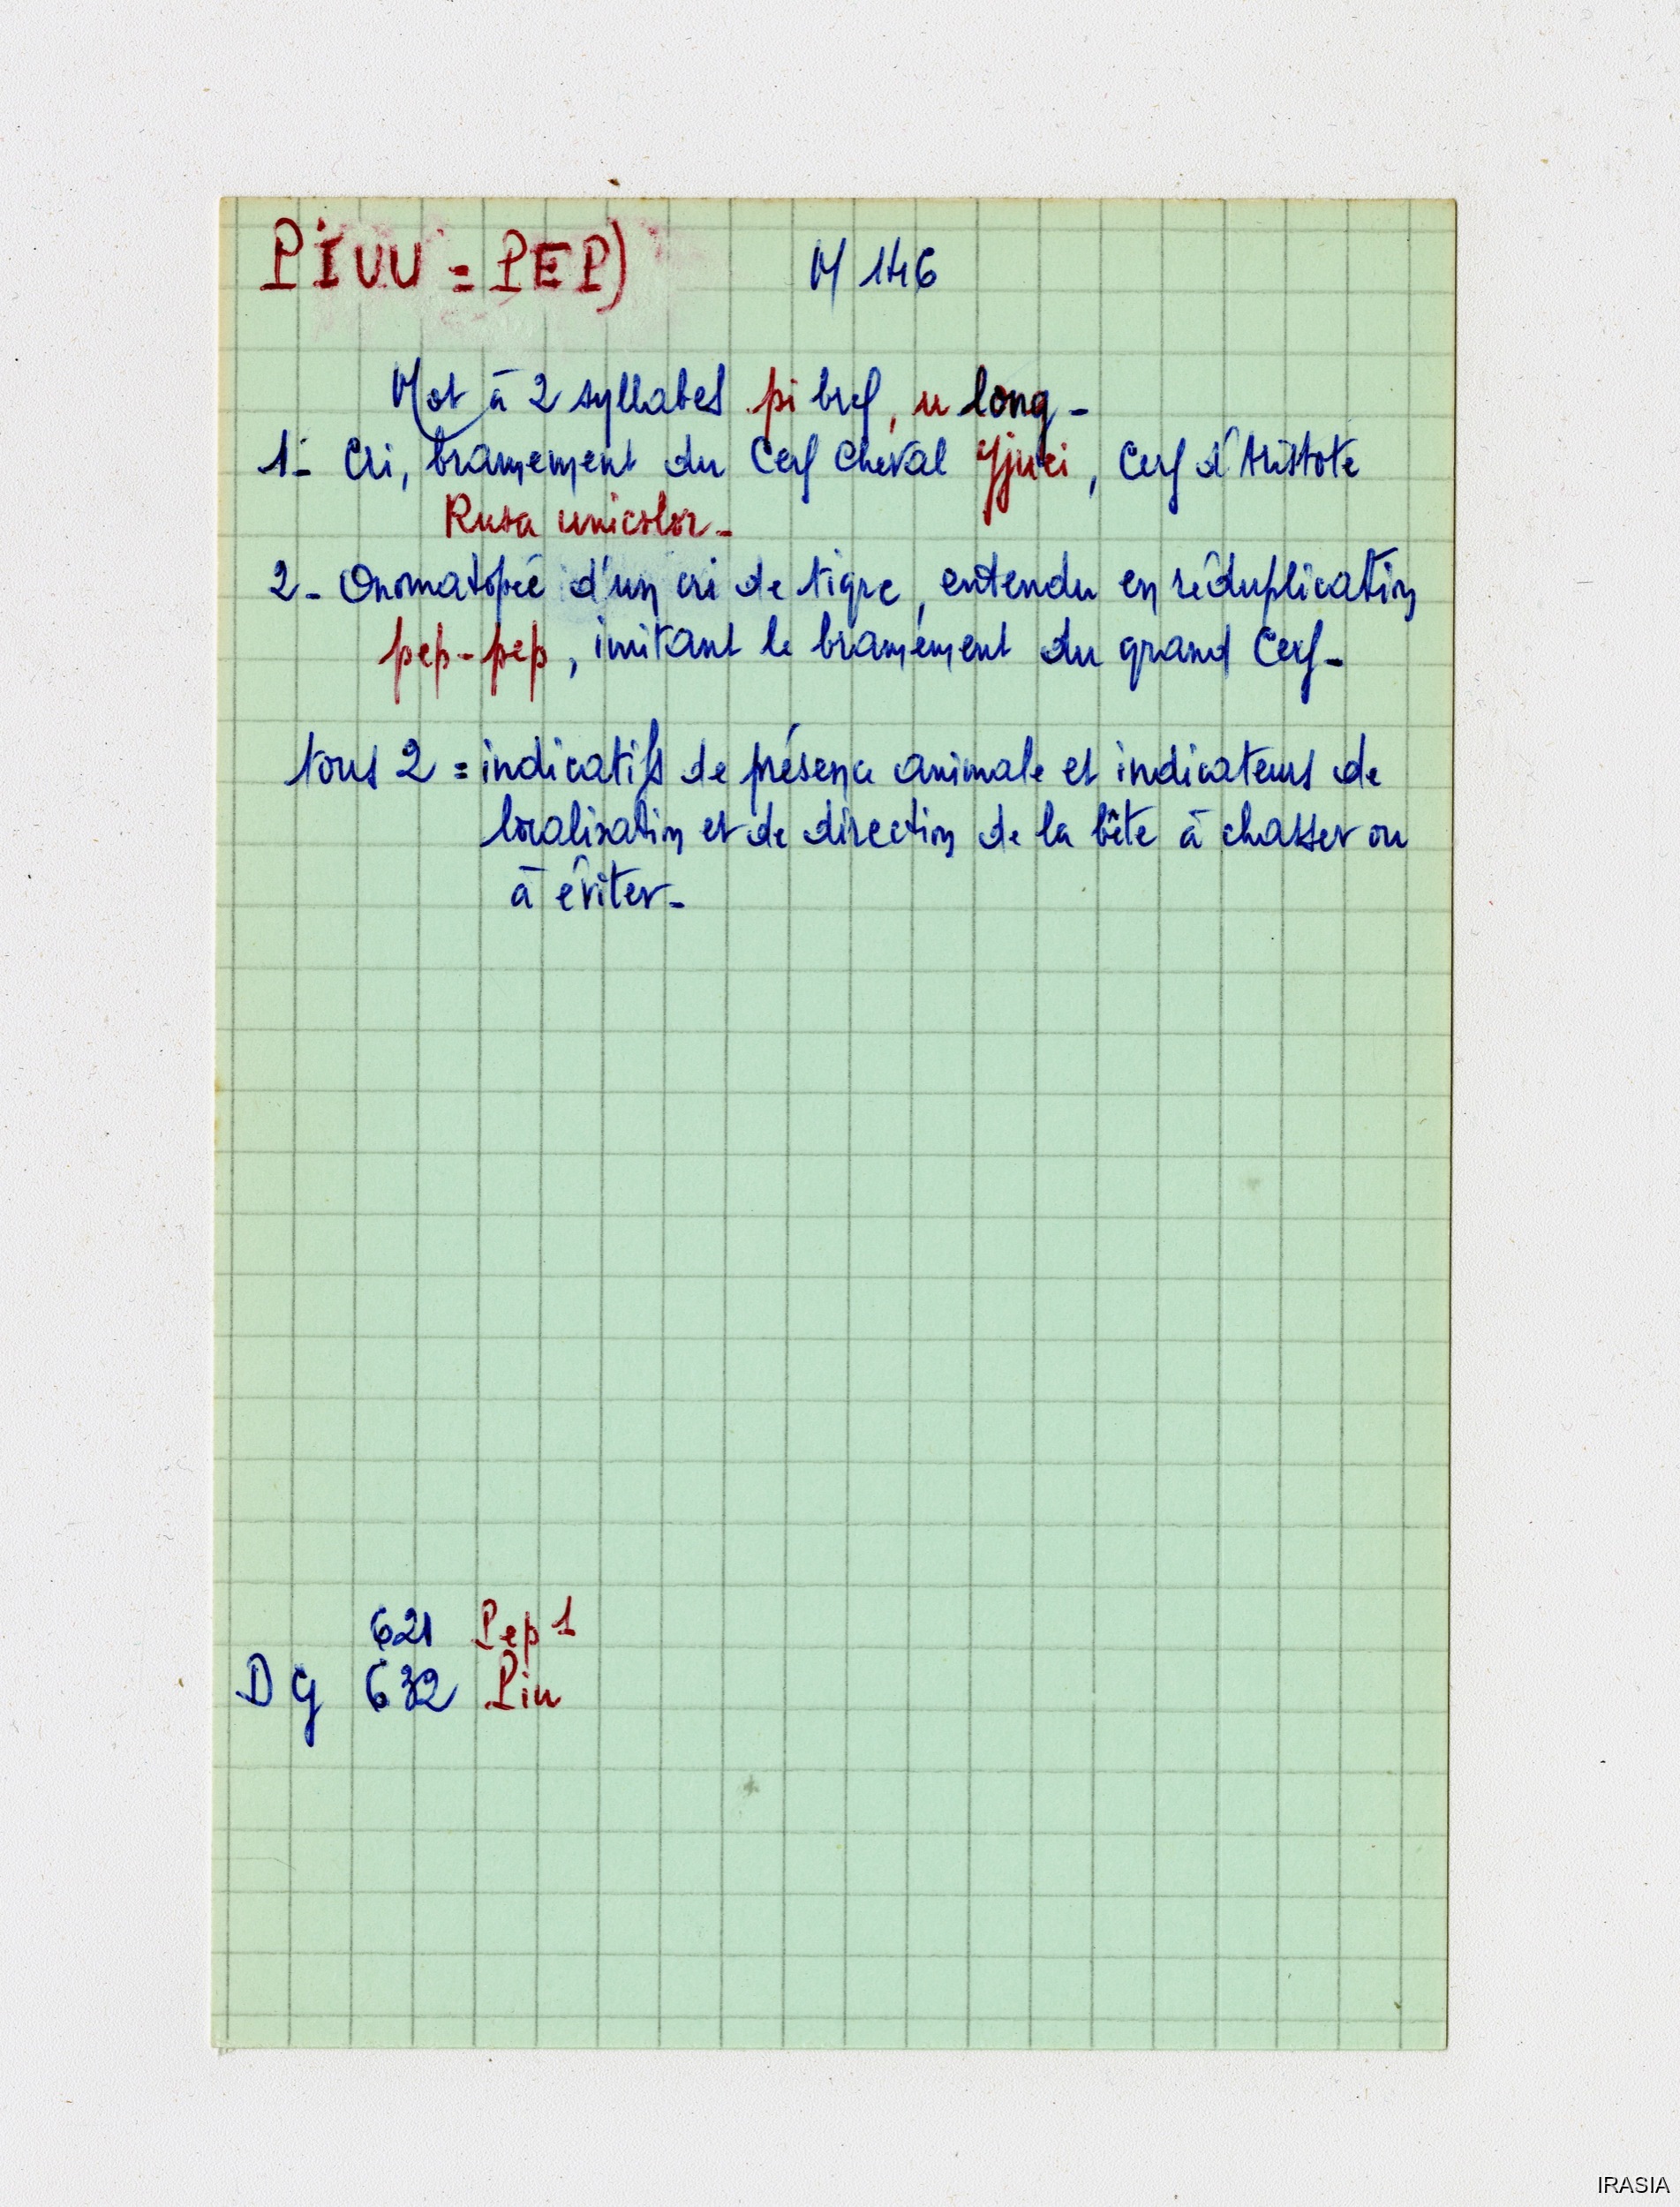 PIUU = PEP) M 146
Mot à 2 syllabes pi bref, u long -
1- Cri, bramement du Cerf cheval Yjuei, Cerf d'Aristote
Rusa unicolor -
2- Onomatopée d'un cri de tigre, entendu en réduplication
pep-pep, imitant le bramement du grand Cerf -
tous 2 = indicatifs de présence animale et indicateurs de
localisation et de direction de la bête à chasser ou
à éviter -
621 Pep 1
DG 632 Piu
IRASIA